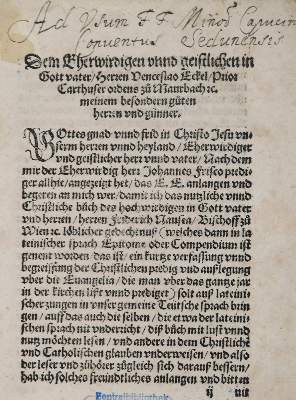 Ad Usum FF Minor̃ Capucin
Conventus Sedunensis
Dem Eherwirdigen vnnd geistlichen in
Gott vater/Herren Venceslao Eckel/Prior
Carthuser ordens zů Maurbach ꝛc.
meinem besondern gůten
herrn vnd günner.
GOttes gnad vnnd frid in Christo Jesu vn-
serm herren vnnd heyland/Eherwirdiger
vnd geistlicher herr vnnd vater/Nach dem
mir der Eherwirdig herr Johannes Frisco predi-
ger allhie/angezeigt het/das E. E. anlangen vnd
begeren an mich wer/damit ich das nutzliche vnnd
Christliche bůch des hochwirdigen in Gott vater
vnd herren/herren Friderich Nausea/Bischoff zů
Wien ꝛc. löblicher gedechtnuß (welches dann in la-
teinischer sprach Epitome oder Compendium ist
genent worden/das ist/ein kurtze verfassung vnnd
begreiffung der Christlichen predig vnd außlegung
vber die Euangelia/die man vber das gantze jar
in der kirchen list vnnd prediget) solt auß lateinis-
scher zungen in vnser gemeine Teütsche sprach brin
gen/auff das auch die selben/die etwa der lateini-
schen sprach nit vnderricht/diß bůch mit lust vnnd
nutz möchten lesen/vnd andere in dem Christliche
vnd Catholischen glauben vnderweisen/vnd also
der leser vnd zůhörer zůgleich sich darauß bessern/
hab ich solches freündtliches anlangen vnd bitten
ij
Zentralbibliothek